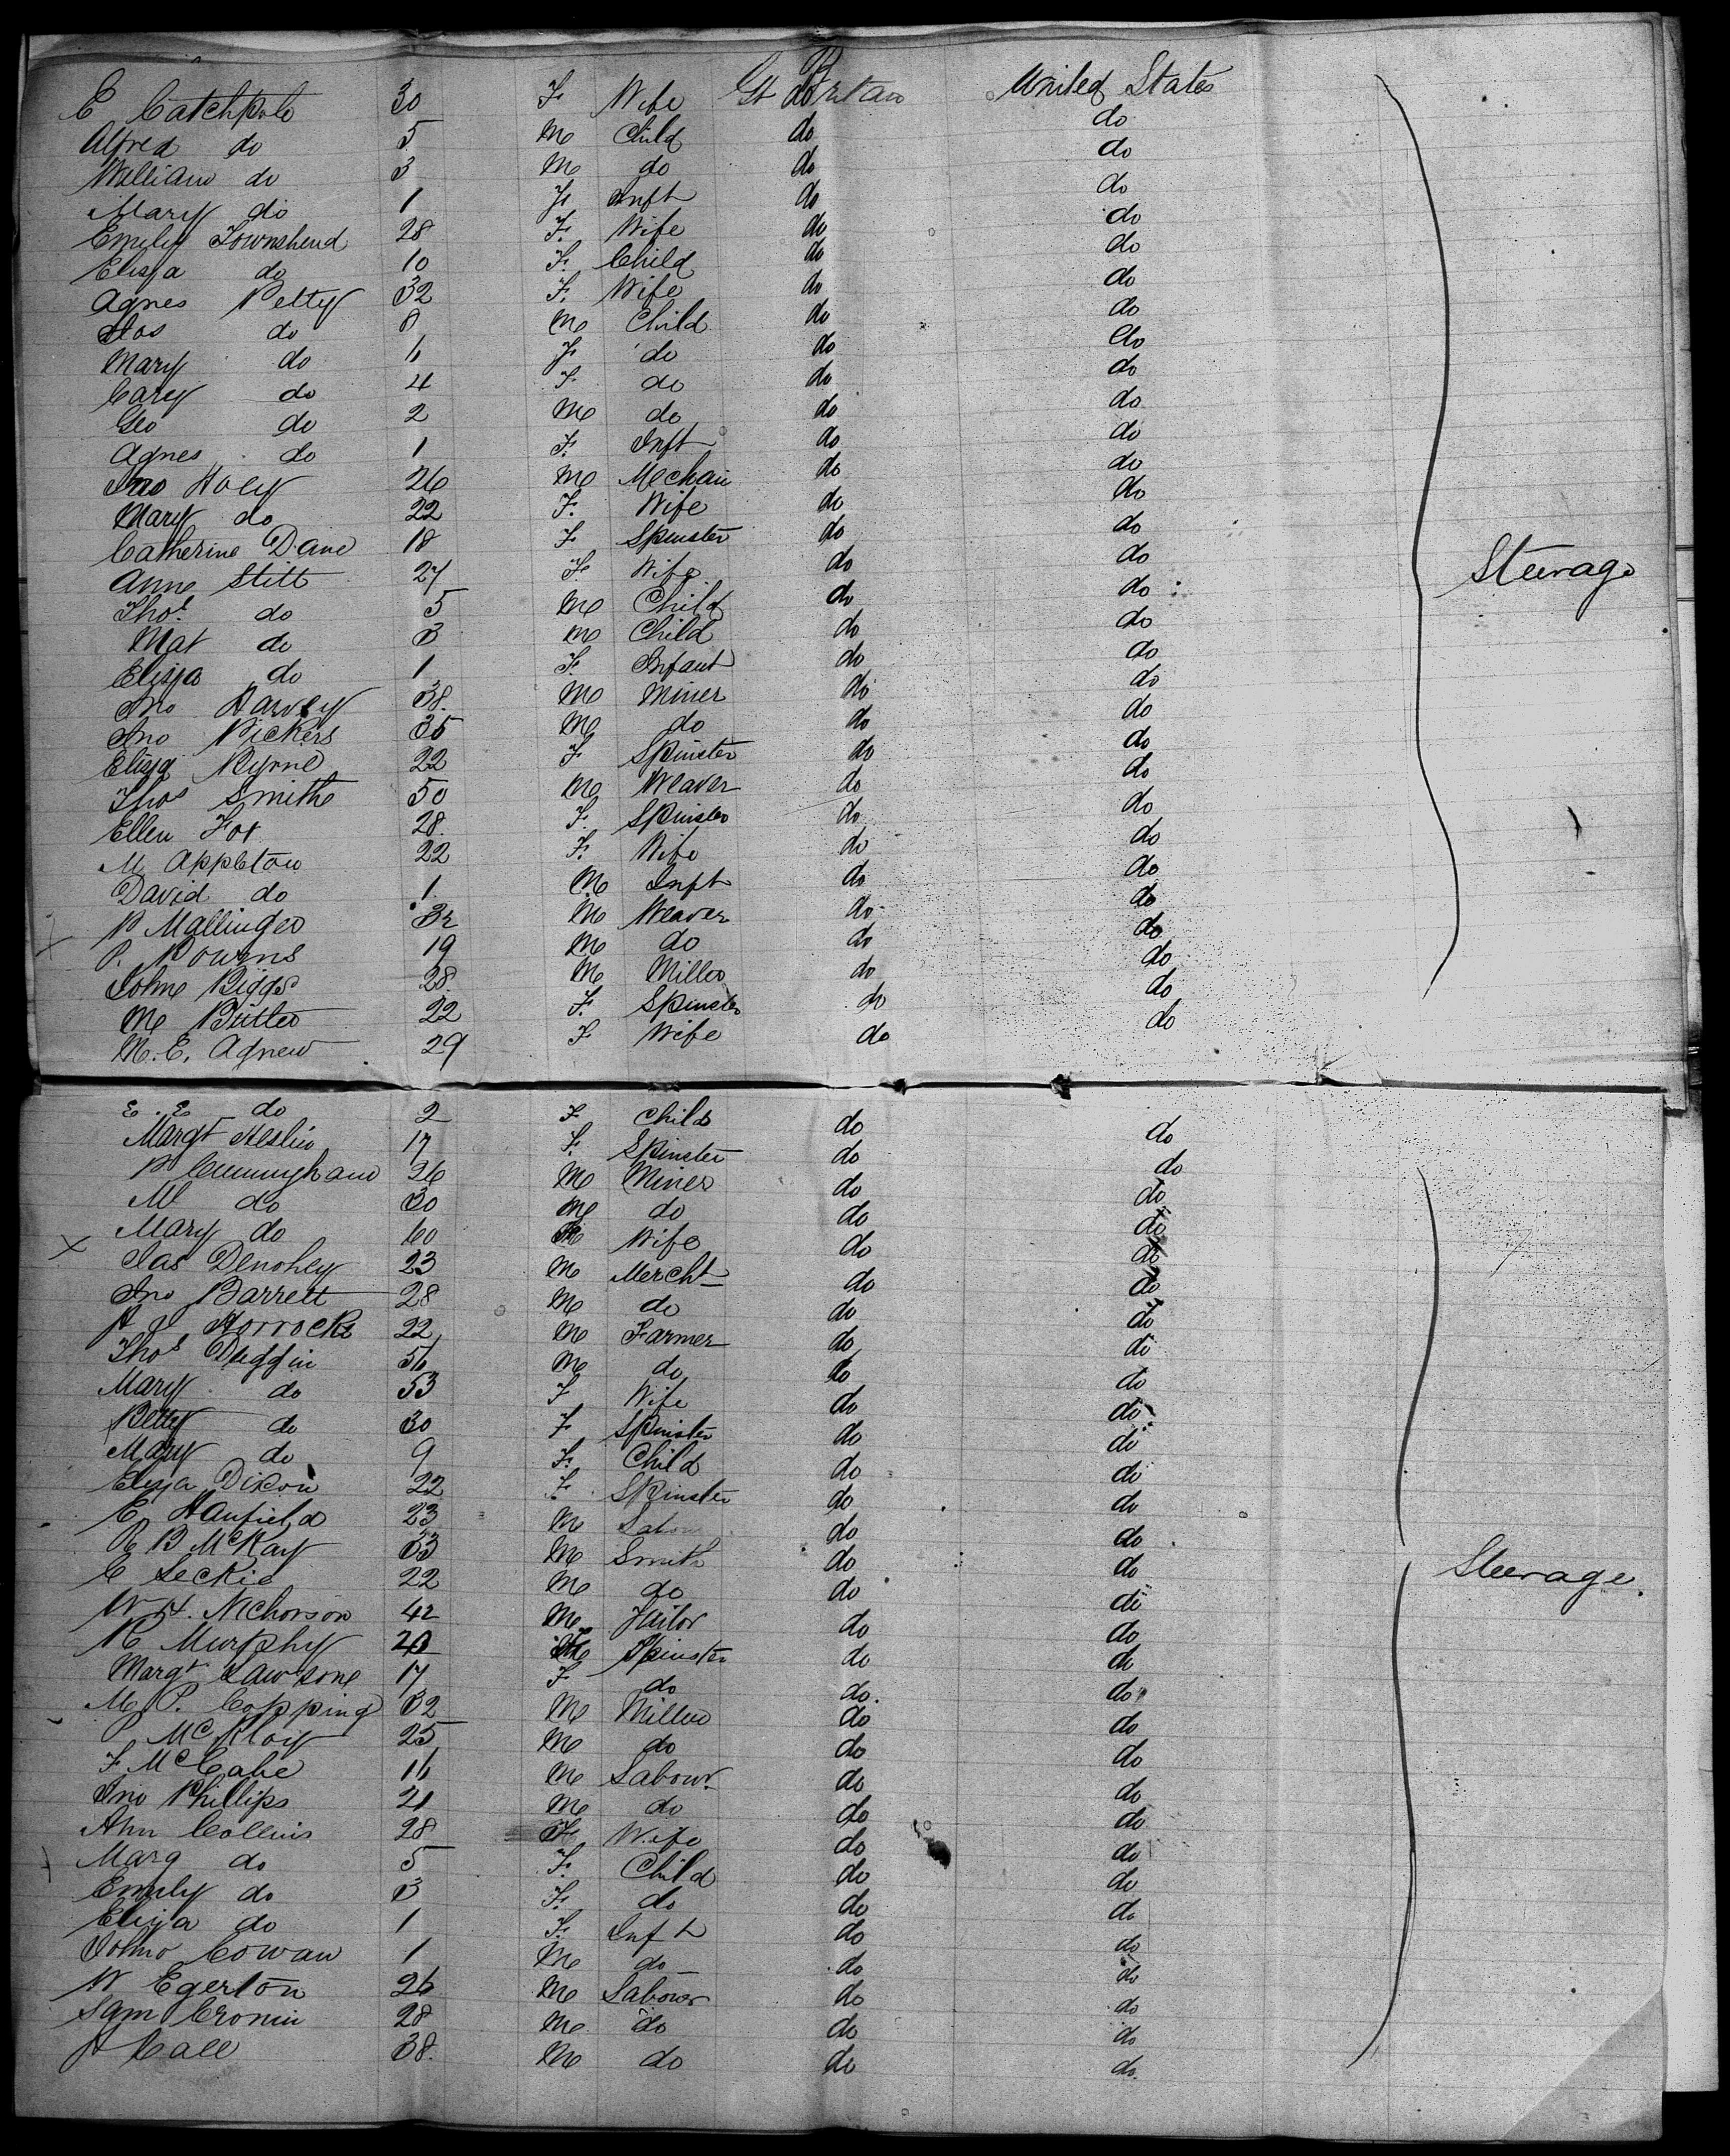 E Catchpole 30 F Wife Gt Britain United States
Alfred do 5 M Child do do
William do 3 M do do do
Mary do 1 F Inft do do
Emily Townshend 28 F. Wife do do
Eliza do 10 F. Child do do
Agnes Petty 32 F. Wife do do
Jas do 8 M Child do do
Mary do 6 F do do do
Cary do 4 F do do do
Geo do 2 M do do do
Agnes do 1 F. Inft do do
Jno Hoey 26 M Mechan do do
Mary do 22 F. Wife do do
Catherine Dane 18 F Spinster do do
Anne Stitt 27 F. Wife do do
Thos do 5 M Child do do
Mat do 3 M Child do do
Eliza do 1 F. Infant do do
Jno Harvey 38. M Miner do do
Jno Vickers 35 M do do do
Eliza Byrne 22 F Spinster do do
Thos Smith 50 M Weaver do do
Ellen Fox 28. F. Spinster do do
M Appleton 22 F. Wife do do
David do 1 M Inft do do
P Mallinger 32 M Weaver do do
P. Powens 19 M do do do
John Bigger 28. M Miller do do
M Butler 22 F. Spinster do do
M. E. Agnew 29 F Wife do do
Steerage
E. E do 2 F Child do do
Margt Heslin 17 F. Spinster do do
P Cunningham 26 M Miner do do
M do 30 M do do do
Mary do 60 Wife do do
Jas Denohey 23 M Mercht do do
Jno Barrett 28 M do do do
Horrocks 22 M Farmer do do
Thos Duggin 56 M do do do
Mary do 53 F Wife do do
Betty do 30 F Spinster do do
Mary do 9 F. Child do do
Eliza Dixon 22 F. Spinster do do
E Hanfield 23 M Labour do do
R B McKay 33 M Smith do do
E Leckie 22 M do do do
W H. Nchorson 42 M Tailor do do
R Murphy 20 F Spinster do do
Margt Lawsone 17 F do do do
M P. Copping 32 M Miller do do
P McKloy 25 M do do do
F McCabe 16 M Labour. do do
Jno Phillips 21 M do do do
Ann Collins 28 F Wife do do
Marg do 5 F. Child do do
Emily do 3 F. do do do
Eliza do 1 F. Inft do do
John Cowan 1 M do do do
W Egerton 26 M Labour do do
Sam Cronin 28 M do do do
H Call 38. M do do do.
Steerage.